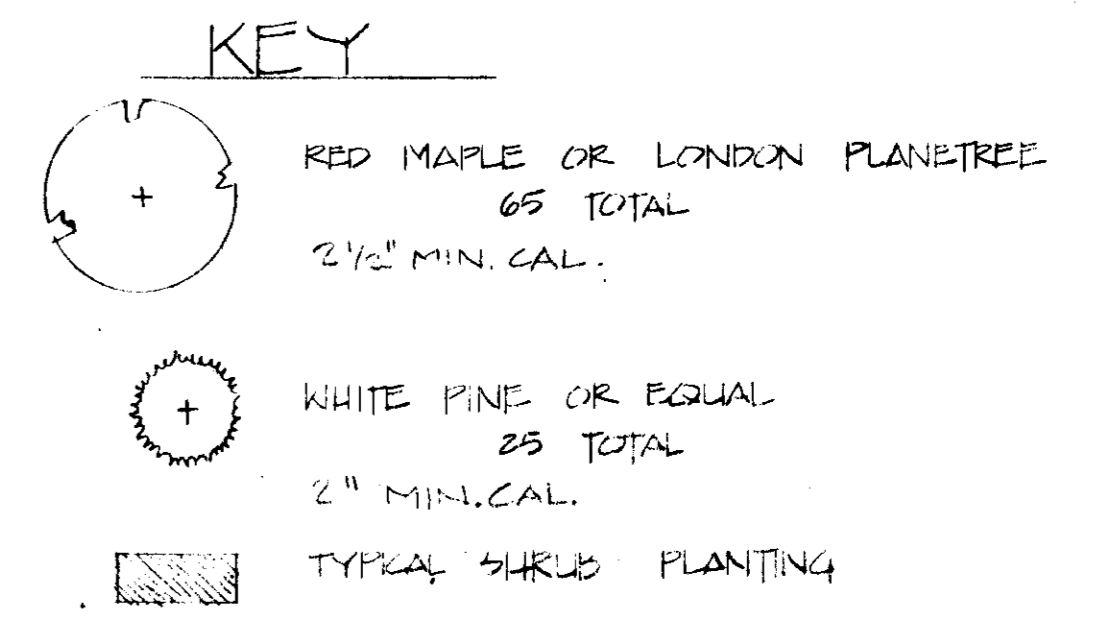 KEY
RED MAPLE OR LONDON PLANETREE
65 TOTAL
2 1/2" MIN. CAL.
WHITE PINE OR EQUAL
25 TOTAL
2" MIN. CAL.
TYPICAL SHRUB PLANTING